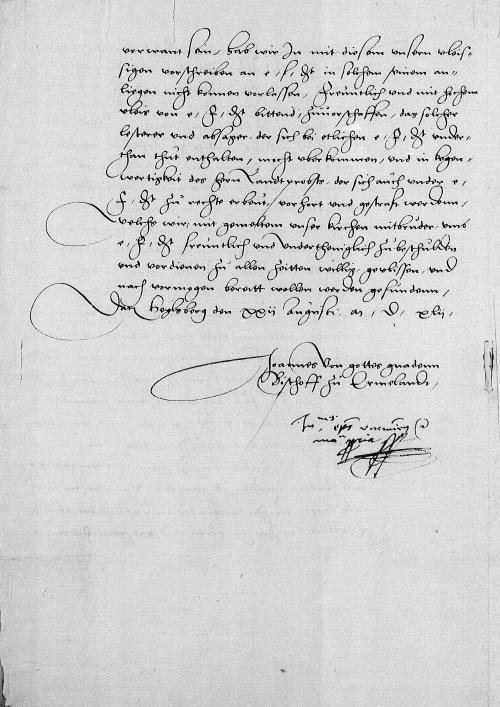 vorwant sein, hab wir In mit diesem unsern vleis-
sigen vorschreiben an e, f, dt in solchem seinem an-
liegen nicht konnen vorlassen, freuntlich und mit hohem
vleis von e, f, dt bittend, zuvorschaffen, das solcher
lesterer und absager, der sich bei etlichen e, f, dt under-
than thut enthalten, mocht uberkummen, und in kegen-
wertigkeit des hern Landtprobsts, der sich auch under e,
f, dt zu rechte erbeut, vorhort und gestraft werdenn,
welchs wir, mit gemeltem unser kirchen mitbruder, umb
e, f, dt freuntlich und undertheniglich zubeschulden
und vordienen zu allen zeitten willig, gevlissen, und
nach vormogen bereitt wollen werden gefundenn,
Dat, Heylsberg den xxii Augusti, a, d, xlii,
Joannes Von gottes gnadenn
Bischoff zu Ermelandt,
eps
ma pria